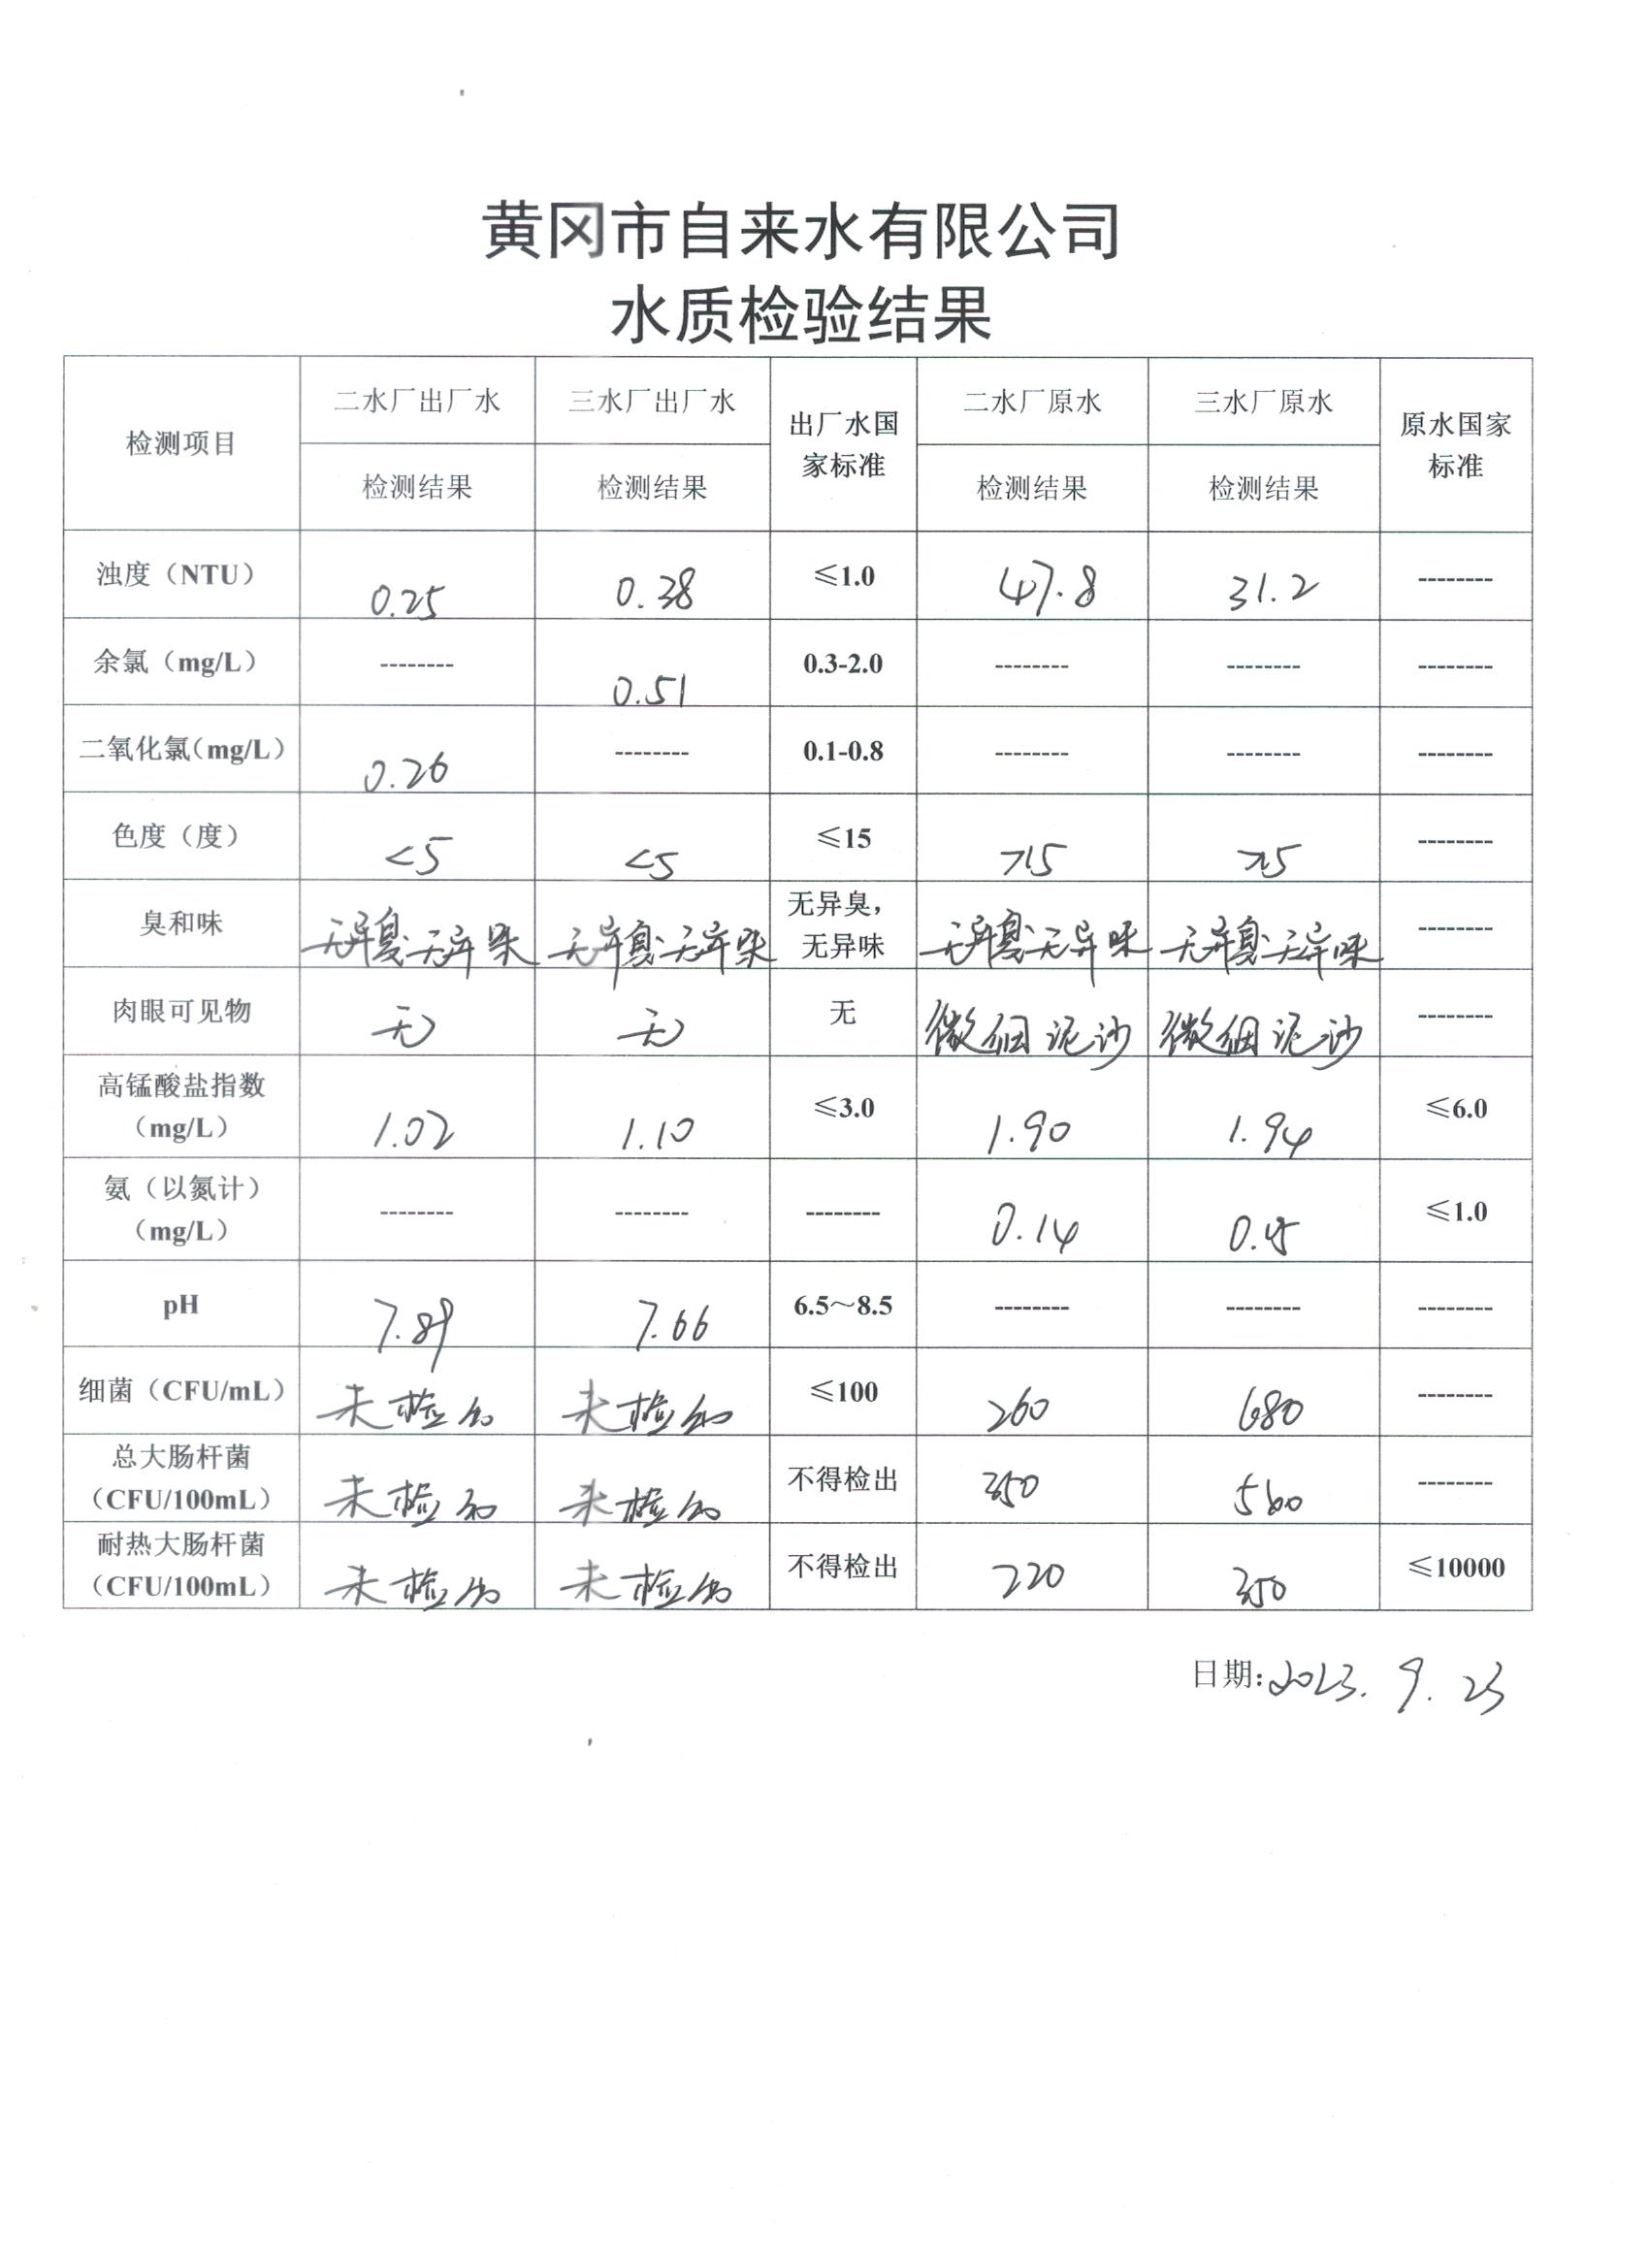 黄冈市自来水有限公司
水质检验结果
检测项目 二水厂出厂水 三水厂出厂水 出厂水国家标准 二水厂原水 三水厂原水 原水国家标准
检测结果 检测结果 检测结果 检测结果
浊度（NTU） 0.25 0.38 ≤1.0 47.8 31.2 --------
余氯（mg/L） -------- 0.51 0.3-2.0 -------- -------- --------
二氧化氯（mg/L） 0.26 -------- 0.1-0.8 -------- -------- --------
色度（度） <5 <5 ≤15 >15 >15 --------
臭和味 无异臭;无异味 无异臭;无异味 无异臭，无异味 无异臭;无异味 无异臭;无异味 --------
肉眼可见物 无 无 无 微细泥沙 微细泥沙 --------
高锰酸盐指数（mg/L） 1.02 1.10 ≤3.0 1.90 1.94 ≤6.0
氨（以氮计）（mg/L） -------- -------- -------- 0.14 ≤1.0
pH 7.89 7.66 6.5～8.5 -------- -------- --------
细菌（CFU/mL） 未检出 未检出 ≤100 260 680 --------
总大肠杆菌（CFU/100mL） 未检出 未检出 不得检出 350 560 --------
耐热大肠杆菌（CFU/100mL） 未检出 未检出 不得检出 220 350 ≤10000
日期:2023.9.23